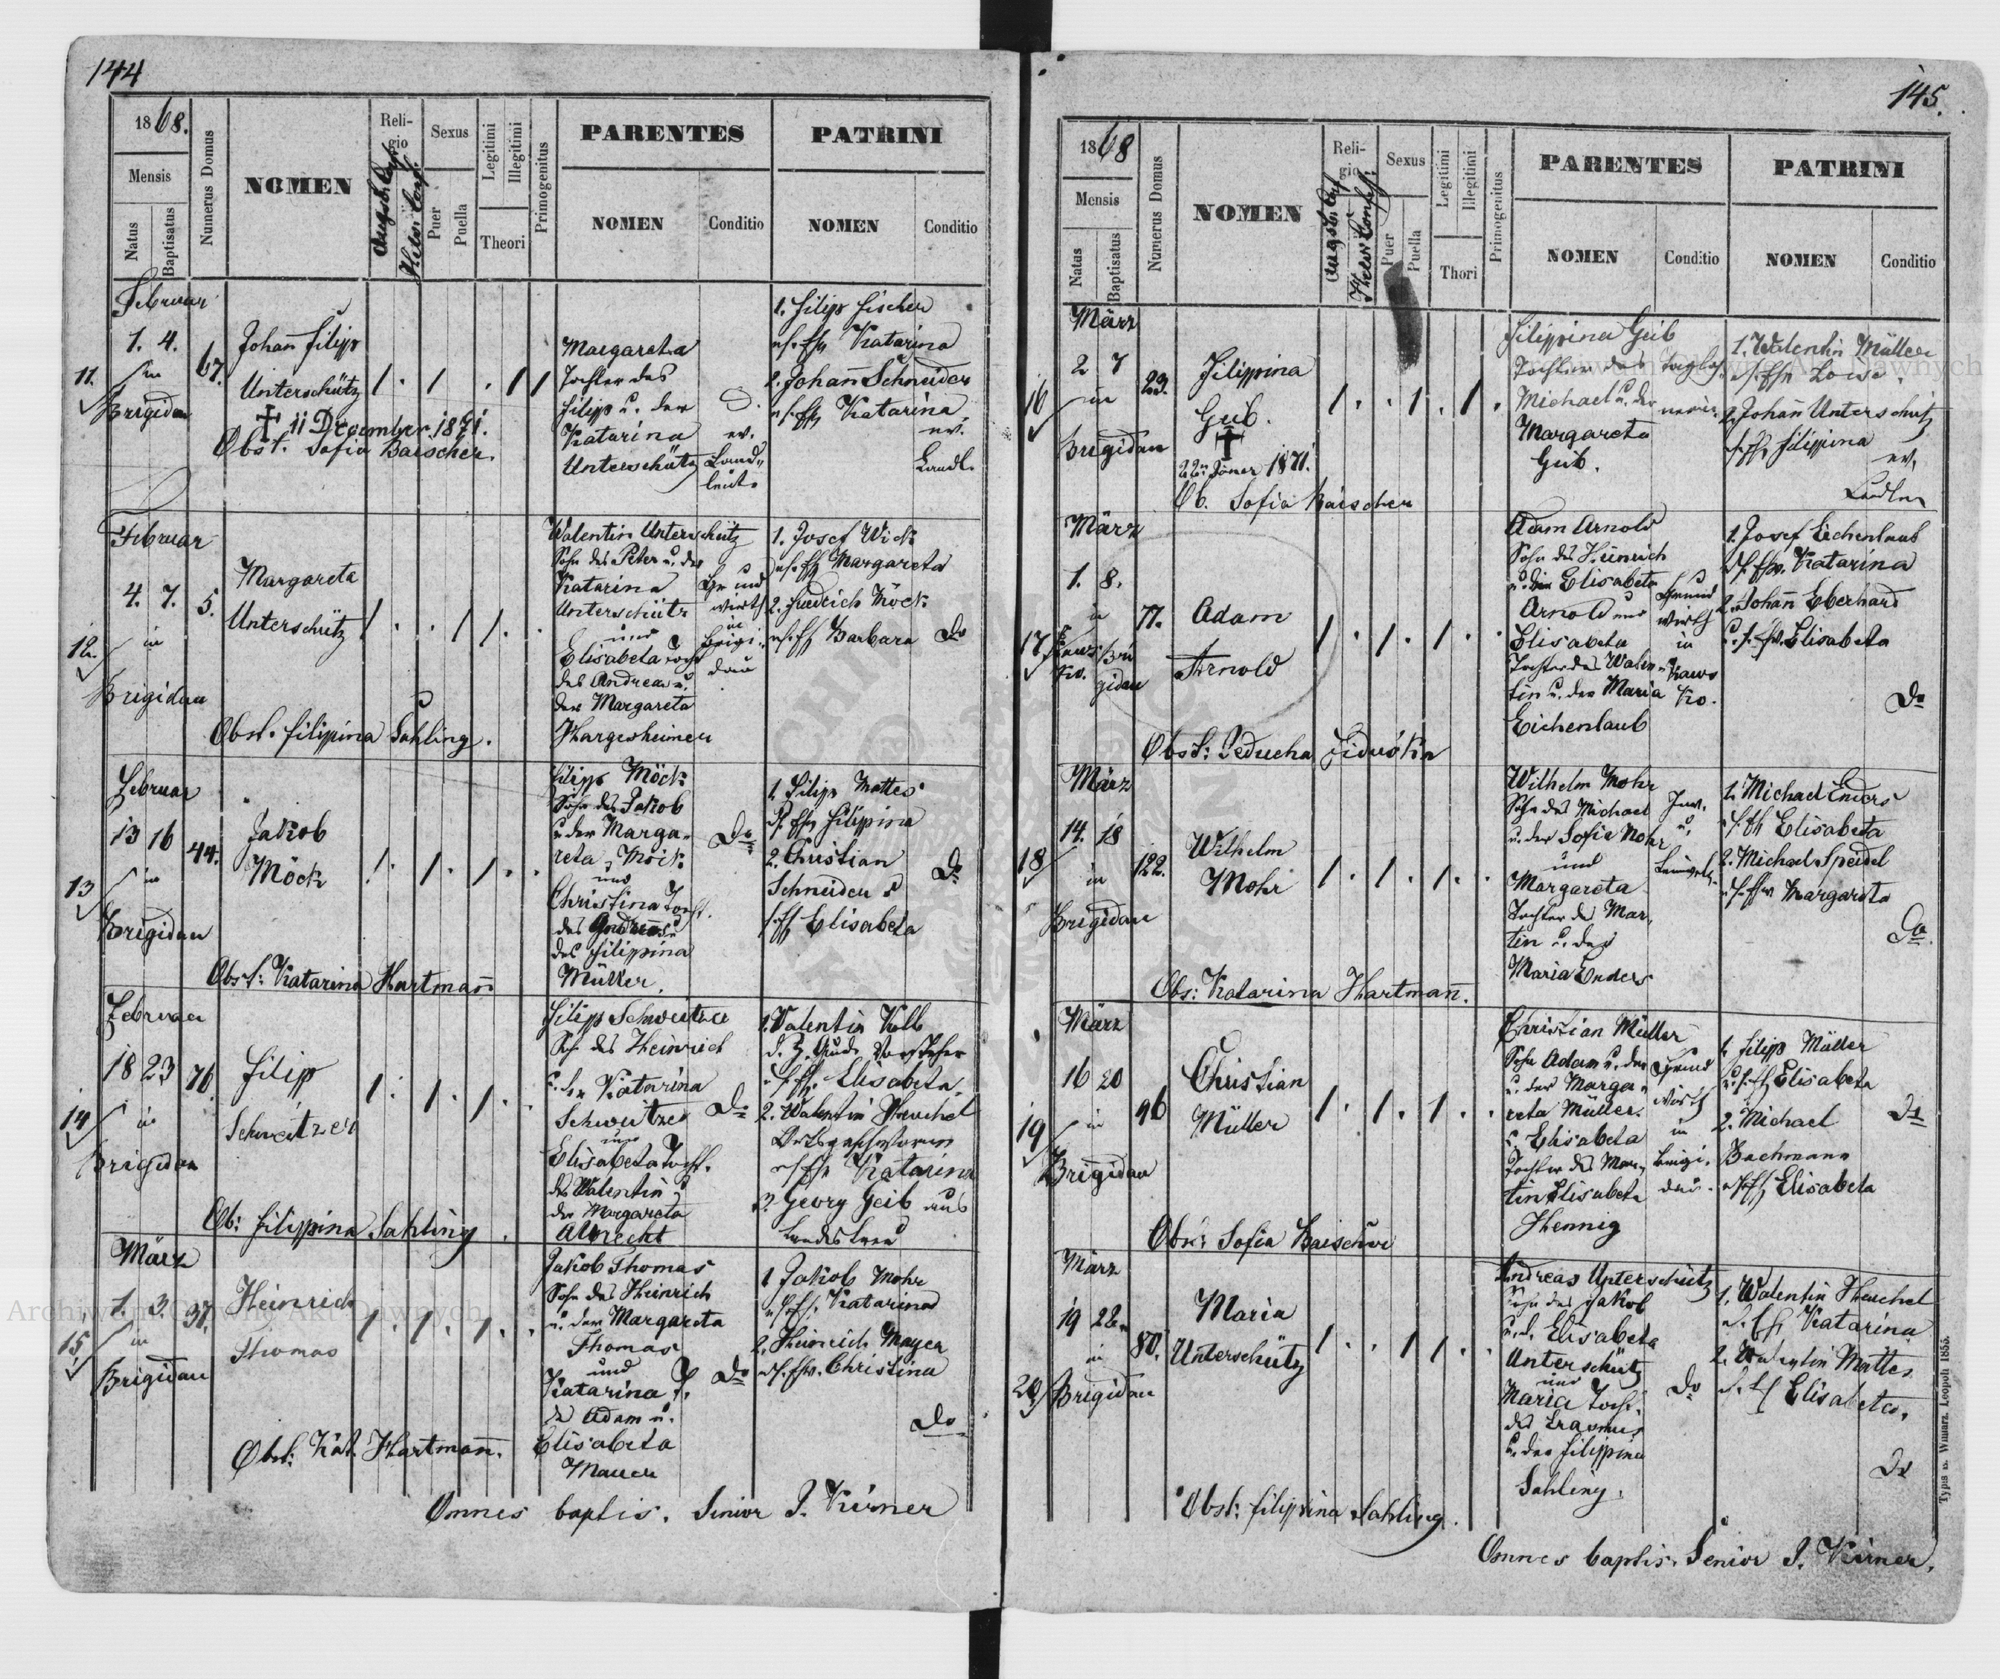 144
1868.
Mensis
Natus
Baptisatus
Numerus Domus
NOMEN
Religio
Augsb. Conf.
Helv. Conf.
Sexus
Puer
Puella
Legitimi
Illegitimi
Thori
Primogenitus
PARENTES
NOMEN
Conditio
PATRINI
NOMEN
Conditio
11.
Februar
1. 4.
in
Brigidau
67.
Johañ Filipp
Unterschütz
11 December 1871.
Obst. Sofia Baischer.
Margareta
Tochter des
Filip u. der
Katarina
Unterschütz
ev.
Land-
leute
1. Filip Fischer
Katarina
2. Johañ Schneider
Katarina
ev.
Landl.
12.
Februar
4. 7.
in
Brigidau
5.
Margareta
Unterschütz
Obst. Filippina Sahling.
Valentin Unterschütz
Sohn des Peter u. der
Katarina
Unterschütz
und
Elisabeta Tocht
des Andreas u.
der Margareta
Hargesheimer
Grund
wirth
in
Brigi-
dau
1. Josef Wick
Margareta
2. Fridrich Köck
Barbara
Do
13
Februar
13 16
in
Brigidau
44.
Jakob
Möck
Obst: Katarina Hartmañ
Filipp Möck
Sohn des Jakob
u. der Marga-
reta Möck
und
Christina Tocht.
des Andreas u
der Filippina
Müller.
Do
1. Filip Mattes
Filippina
2. Christian
Schneider
Elisabeta
Do
14
Februar
18 23
in
Brigidau
76.
Filip
Schweitzer
Ob: Filippina Sahling.
Filipp Schweitzer
des Heinrich
Katarina
Schweitzer
und
Elisabeta Tocht.
des Valentin u
der Margareta
Albrecht
Do
1. Valentin Kolb
Elisabeta
2. Valentin Heuchel
Katarina
3. Georg Geib aus
Landestreu
15
März
1. 3.
in
Brigidau
97.
Heinrich
Thomas
Obst: Kat. Hartmañ.
Jakob Thomas
Sohn des Heinrich
u. der Margareta
Thomas
und
Katarina T.
Adam u.
Elisabeta
Mauer
Do
1 Jakob Mohr
Katarina
2. Heinrich Mayer
Christina
Do
Omnes baptis. Senior J. Kirner
145.
1868
Mensis
Natus
Baptisatus
Numerus Domus
NOMEN
Religio
Augsb. Conf.
Helv. Conf.
Sexus
Puer
Puella
Legitimi
Illegitimi
Thori
Primogenitus
PARENTES
NOMEN
Conditio
PATRINI
NOMEN
Conditio
16
März
2 7
in
Brigidau
23.
Filippina
Geib.
22n Jäner 1871.
Ob. Sofia Baischer
Filippina Geib
Tochter des
Michael u. der
Margareta
Geib.
1. Valentin Müller
2. Johañ Unterschütz
Filippina
ev.
17
März
1. 8.
in
Brigidau
77.
Adam
Arnold
Adam Arnold
Sohn des Heinrich
u. der Elisabeta
Arnold und
Elisabeta
Tochter des Valen-
tin u. der Maria
Eichenlaub
Grund
wirth
in
1. Josef Eichenlaub
Katarina
2. Johañ Eberhard
Elisabeta
Do
18
März
14. 18
in
Brigidau
122.
Wilhelm
Mohr
Obs: Katarina Hartmañ.
Wilhelm Mohr
Sohn des Michael
u. der Sofie Mohr
und
Margareta
Tochter des Mar-
tin u. der
Maria Enders
1. Michael Enders
Elisabeta
2. Michael Speidel
Margareta
Do.
19
März
16 20
in
Brigidau
96
Christian
Müller
Obst: Sofia Baischer
Christian Müller
Sohn Adam u. der
u. der Marga-
reta Müller.
u. Elisabeta
Tochter des Mar-
tin Elisabeta
Hennig
Grund
wirth
in
Brigi-
dau.
1. Filipp Müller
Elisabeta
2. Michael
Bachmann
Elisabeta
Do
20
März
19 22.
in
Brigidau
80.
Maria
Unterschütz
Obst: Filippina Sahling.
Andreas Unterschütz
Sohn des Jakob
u. d. Elisabeta
Unterschütz
und
Maria Tocht.
des Erasmus
u. der Filippina
Sahling.
Do
1. Valentin Heuchel
Katarina
2. Valentin Mattes
Elisabeta.
Do
Omnes baptis. Senior J. Kirner.
Typis B. Winiarz. Leopoli 1855.
Archiwum Główne Akt Dawnych